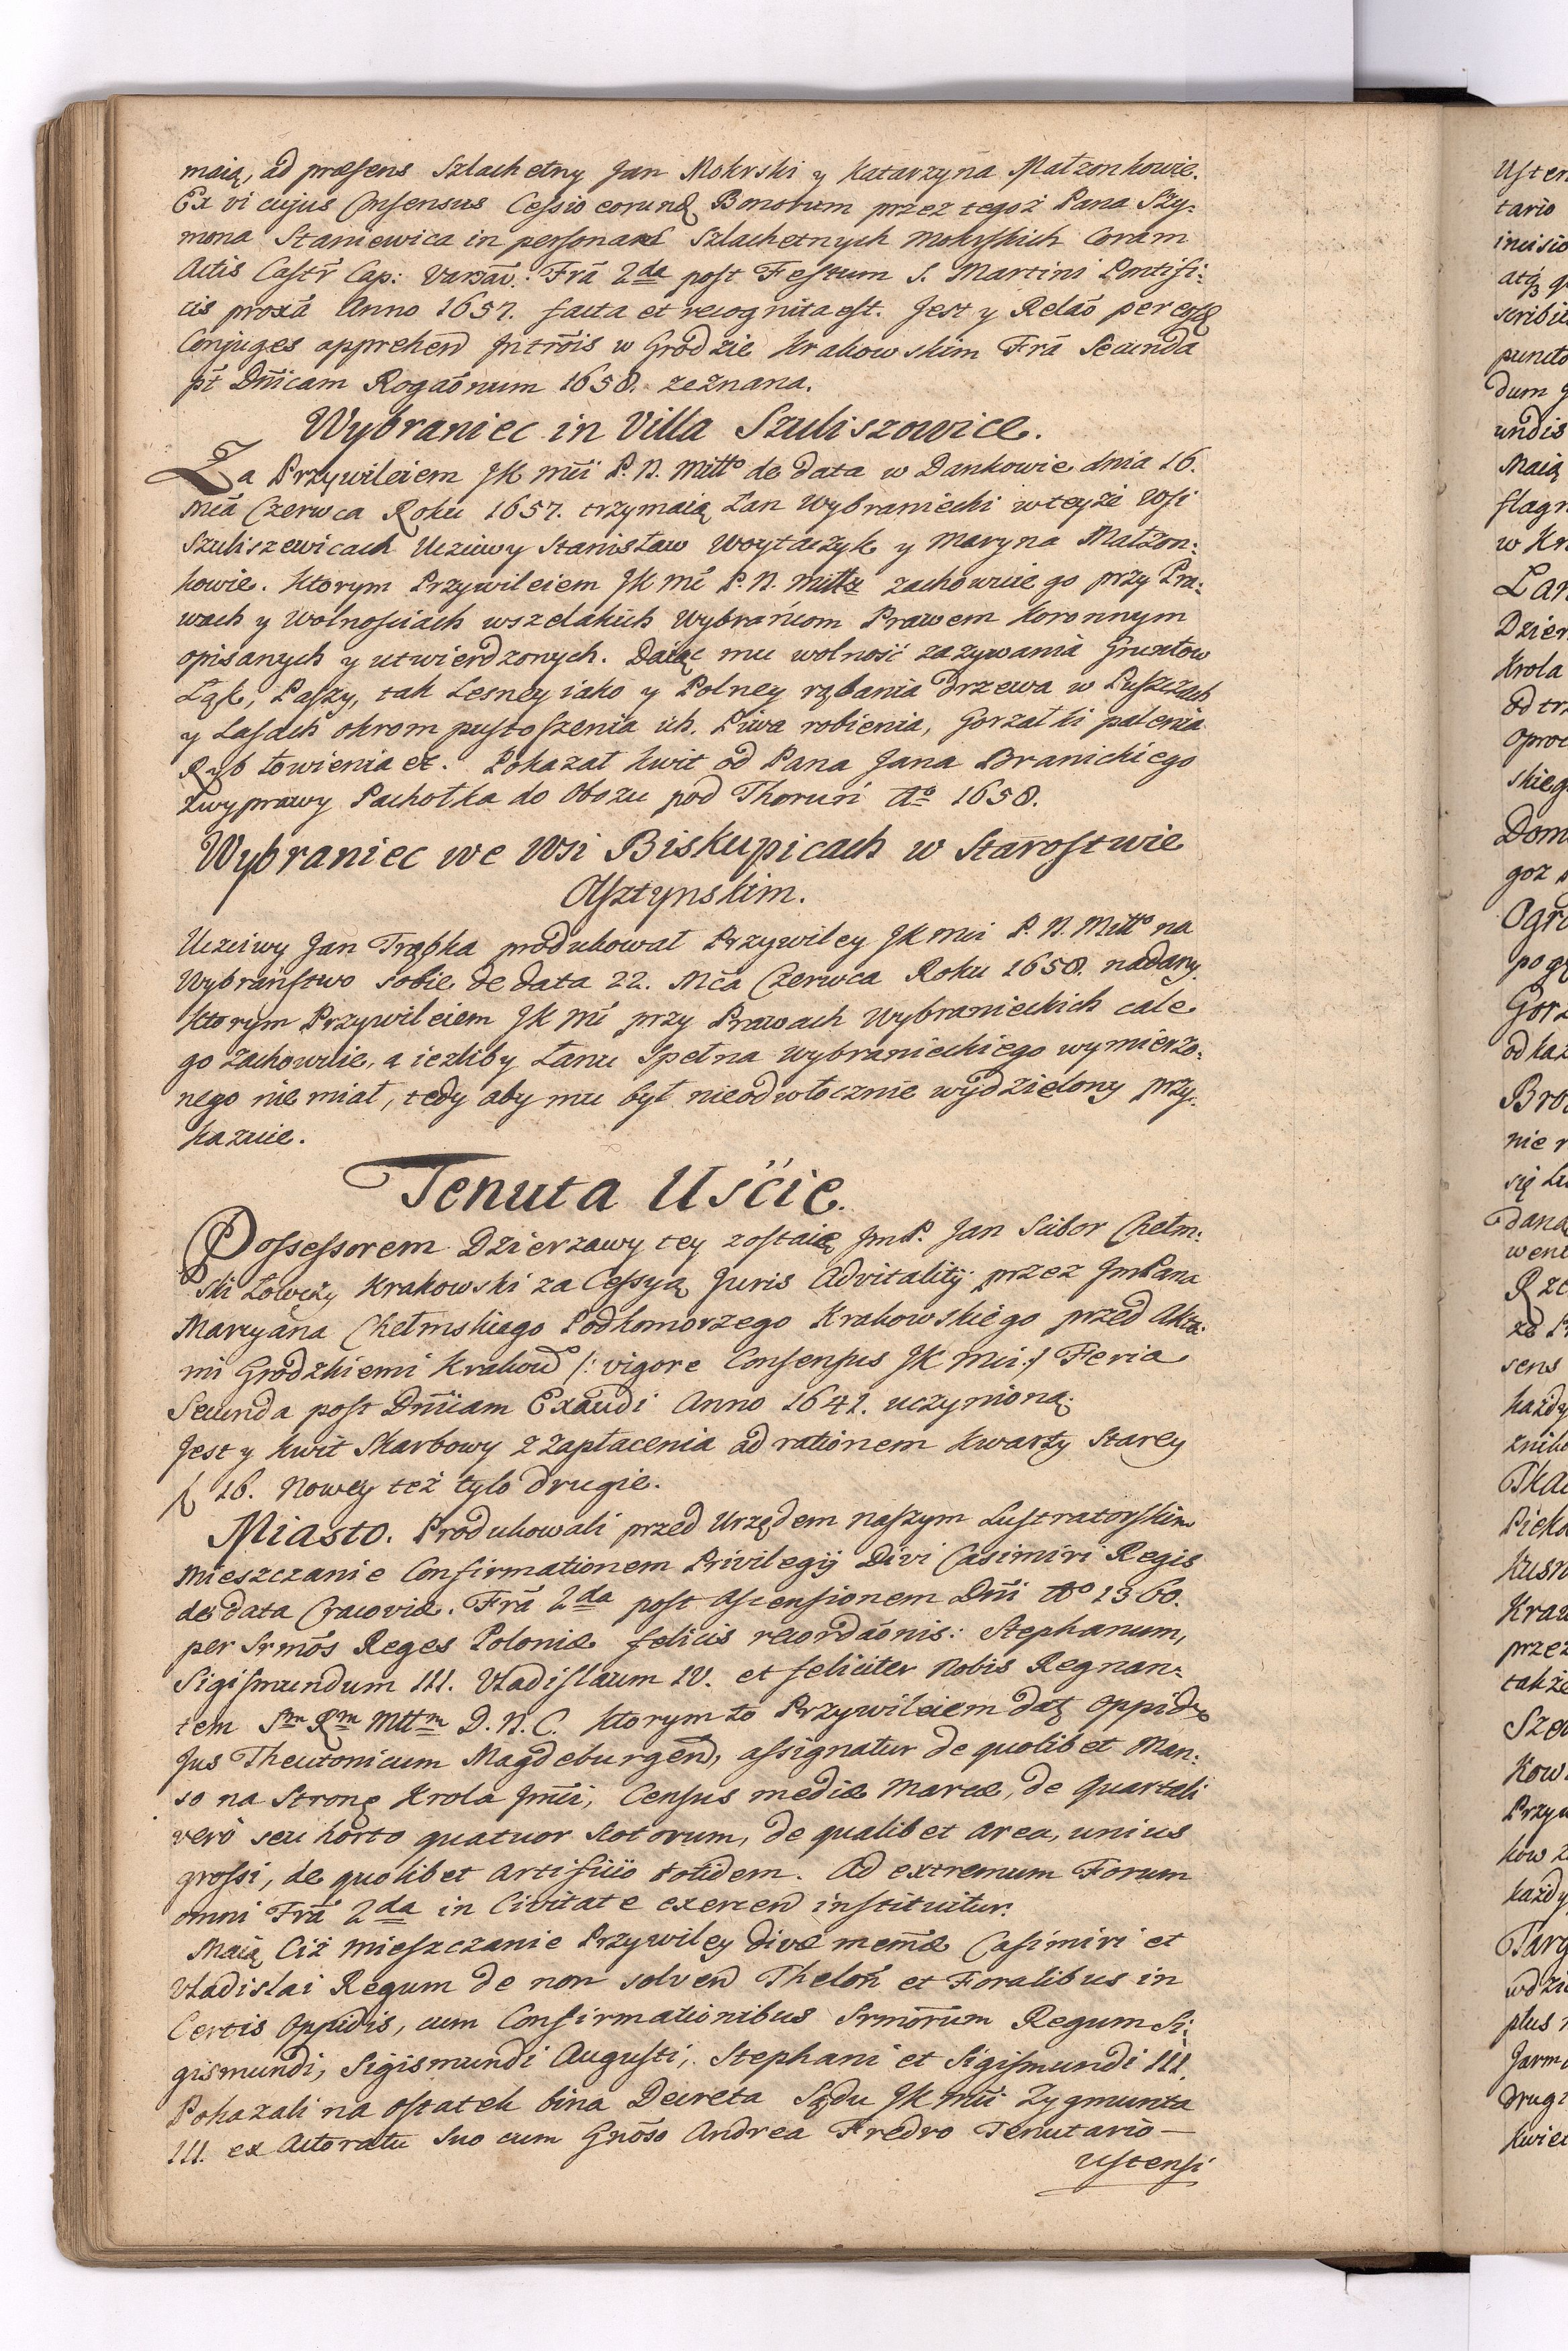 maią, ad præsens Szlachetny Jan Mokrski y Katarzyna Małzonkowie.
Ex vi cujus Consensus Cessio eorund Bonorum przez tegoż Pana Szy-
mona Staniewica in personas Szlachetnych Mokrskich Coram
Actis Castr Cap: Varsav: Frã 2da post Festum S. Martini Pontifi-
cis proxã Anno 1657. facta et recognita est. Jest y Relaõ per eosd
Conjuges apprehen Intrõis w Grodzie Krakowskim Frã Secunda
pt Dnicam Rogaõnum 1658. zeznana.
Wybraniec in Villa Szuliszowice.
Za Przywileiem JK Mci P. N. Mitto de data w Dankowie dnia 16.
Mcã Czerwca Roku 1657. trzymaią Łan Wybraniecki w teyże Wsi
Szuliszewicach Uczciwy Stanisław Woytaszyk y Maryna Małżon-
kowie. Ktorym Przywileiem JK Mć P. N. Mitts zachowuie go przy Pra-
wach y Wolnościach wszelakich Wybrańcom Prawem Koronnym
opisanych y utwierdzonych. Daiąc mu wolność zazywania Gruntow
Łąk, Paszy, tak Lesney iako y Polney rąbania drzewa w Puszczach
y Lasach okrom pustoszenia ich. Piwa robienia, Gorzałki palenia
Ryb łowienia et. Pokazał kwit od Pana Jana Branickiego
Zwyprawy Pachołka do Obozu pod Thoruń Ao 1658.
Wybraniec we Wsi Biskupicach w Starostwie
Olsztynskim.
Uczciwy Jan Trąbka produkował Przywiley JK Mci P. N. Mitto na
Wybraństwo sobie de data 22. Mca Czerwca Roku 1658. nadany.
Ktorym Przywileiem JK Mć przy Prawach Wybranieckich cale
go zachowuie, a iezliby Łanu Spełna Wybranieckiego wymierzo-
nego nie miał, tedy aby mu był nieodwłocznie wydzielony przy-
kazuie.
Tenuta Uście.
Possessorem Dzierzawy tey zostaie JmP. Jan Scibor Chełm-
ski Łowczy Krakowski za Cessyą Juris Advitality przez JmPana
Marcyana Chełmskiego Podkomorzego Krakowskiego przed Akta-
mi Grodzkiemi Krakow /: vigore Consensus JK Mci :/ Feria
Secunda post Dnicam Exaudi Anno 1641. uczynioną.
Jest y kwit Skarbowy z zapłacenia ad rationem Kwarty Starey
f 16. Nowey też tylo drugie.
Miasto. Produkowali przed Urzędem naszym Lustratorskim
Mieszczanie Confirmationem Privilegij Divi Casimiri Regis
de data Cracoviæ. Frã 2da post Ascensionem Dni Ao 1360.
per Srmõs Reges Poloniæ felicis recordaõnis: Stephanum,
Sigismundum III. Vladislaum IV. et feliciter Nobis Regnan-
tem Sm Rm Mttm D. N. C. Ktorym to Przywileiem datę Oppido
Jus Theutonicum Magdeburgen, assignatur de quolibet Man-
so na Stronę Krola Jmci, Census mediæ Marcæ, de Quartali
verò seu horto quatuor Scotorum, de qualibet area, unius
grossi, de quolibet artificio totidem. Ad extremum Forum
omni Frã 2da in Civitate exercen instituitur.
Maią Ciż Mieszczanie Przywiley divæ memæ Casimiri et
Vladislai Regum de non solven Thelon et Foralibus in
Certis Oppidis, cum Confirmationibus Srmõrum Regum Si-
gismundi, Sigismundi Augusti, Stephani et Sigismundi III.
Pokazali na ostatek bina Decreta Sądu JK Mci Zygmunta
III. ex Actoratu Suo cum Gnõso Andrea Fredro Tenutariõ —
Ustensi